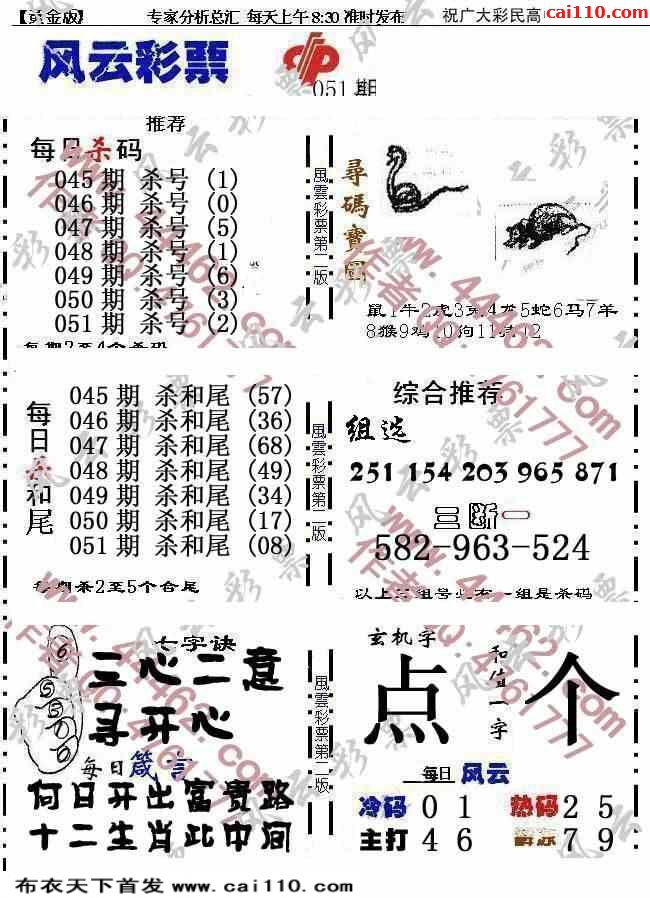 【黄金版】 专家分析总汇 每天上午8:30准时发布 祝广大彩民高
cai110.com
风云彩票
051期
推荐
每日杀码
045期 杀号 (1)
046期 杀号 (0)
047期 杀号 (5)
048期 杀号 (1)
049期 杀号 (6)
050期 杀号 (3)
051期 杀号 (2)
每期2至4个杀码
風雲彩票第二版
尋碼寶圖
鼠1牛2虎3兔4龙5蛇6马7羊
8猴9鸡10狗11猪12
每日杀和尾
045期 杀和尾 (57)
046期 杀和尾 (36)
047期 杀和尾 (68)
048期 杀和尾 (49)
049期 杀和尾 (34)
050期 杀和尾 (17)
051期 杀和尾 (08)
每期杀2至5个合尾
風雲彩票第二版
综合推荐
组选
251 154 203 965 871
三断一
582-963-524
以上三组号码有一组是杀码
七字诀
三心二意
寻开心
每日箴言
何日开出富贵路
十二生肖此中间
風雲彩票第二版
玄机字
点 个
和值一字
每日风云
冷码 0 1 热码 2 5
主打 4 6 7 9
布衣天下首发 www.cai110.com
www.44462.com
风云彩票